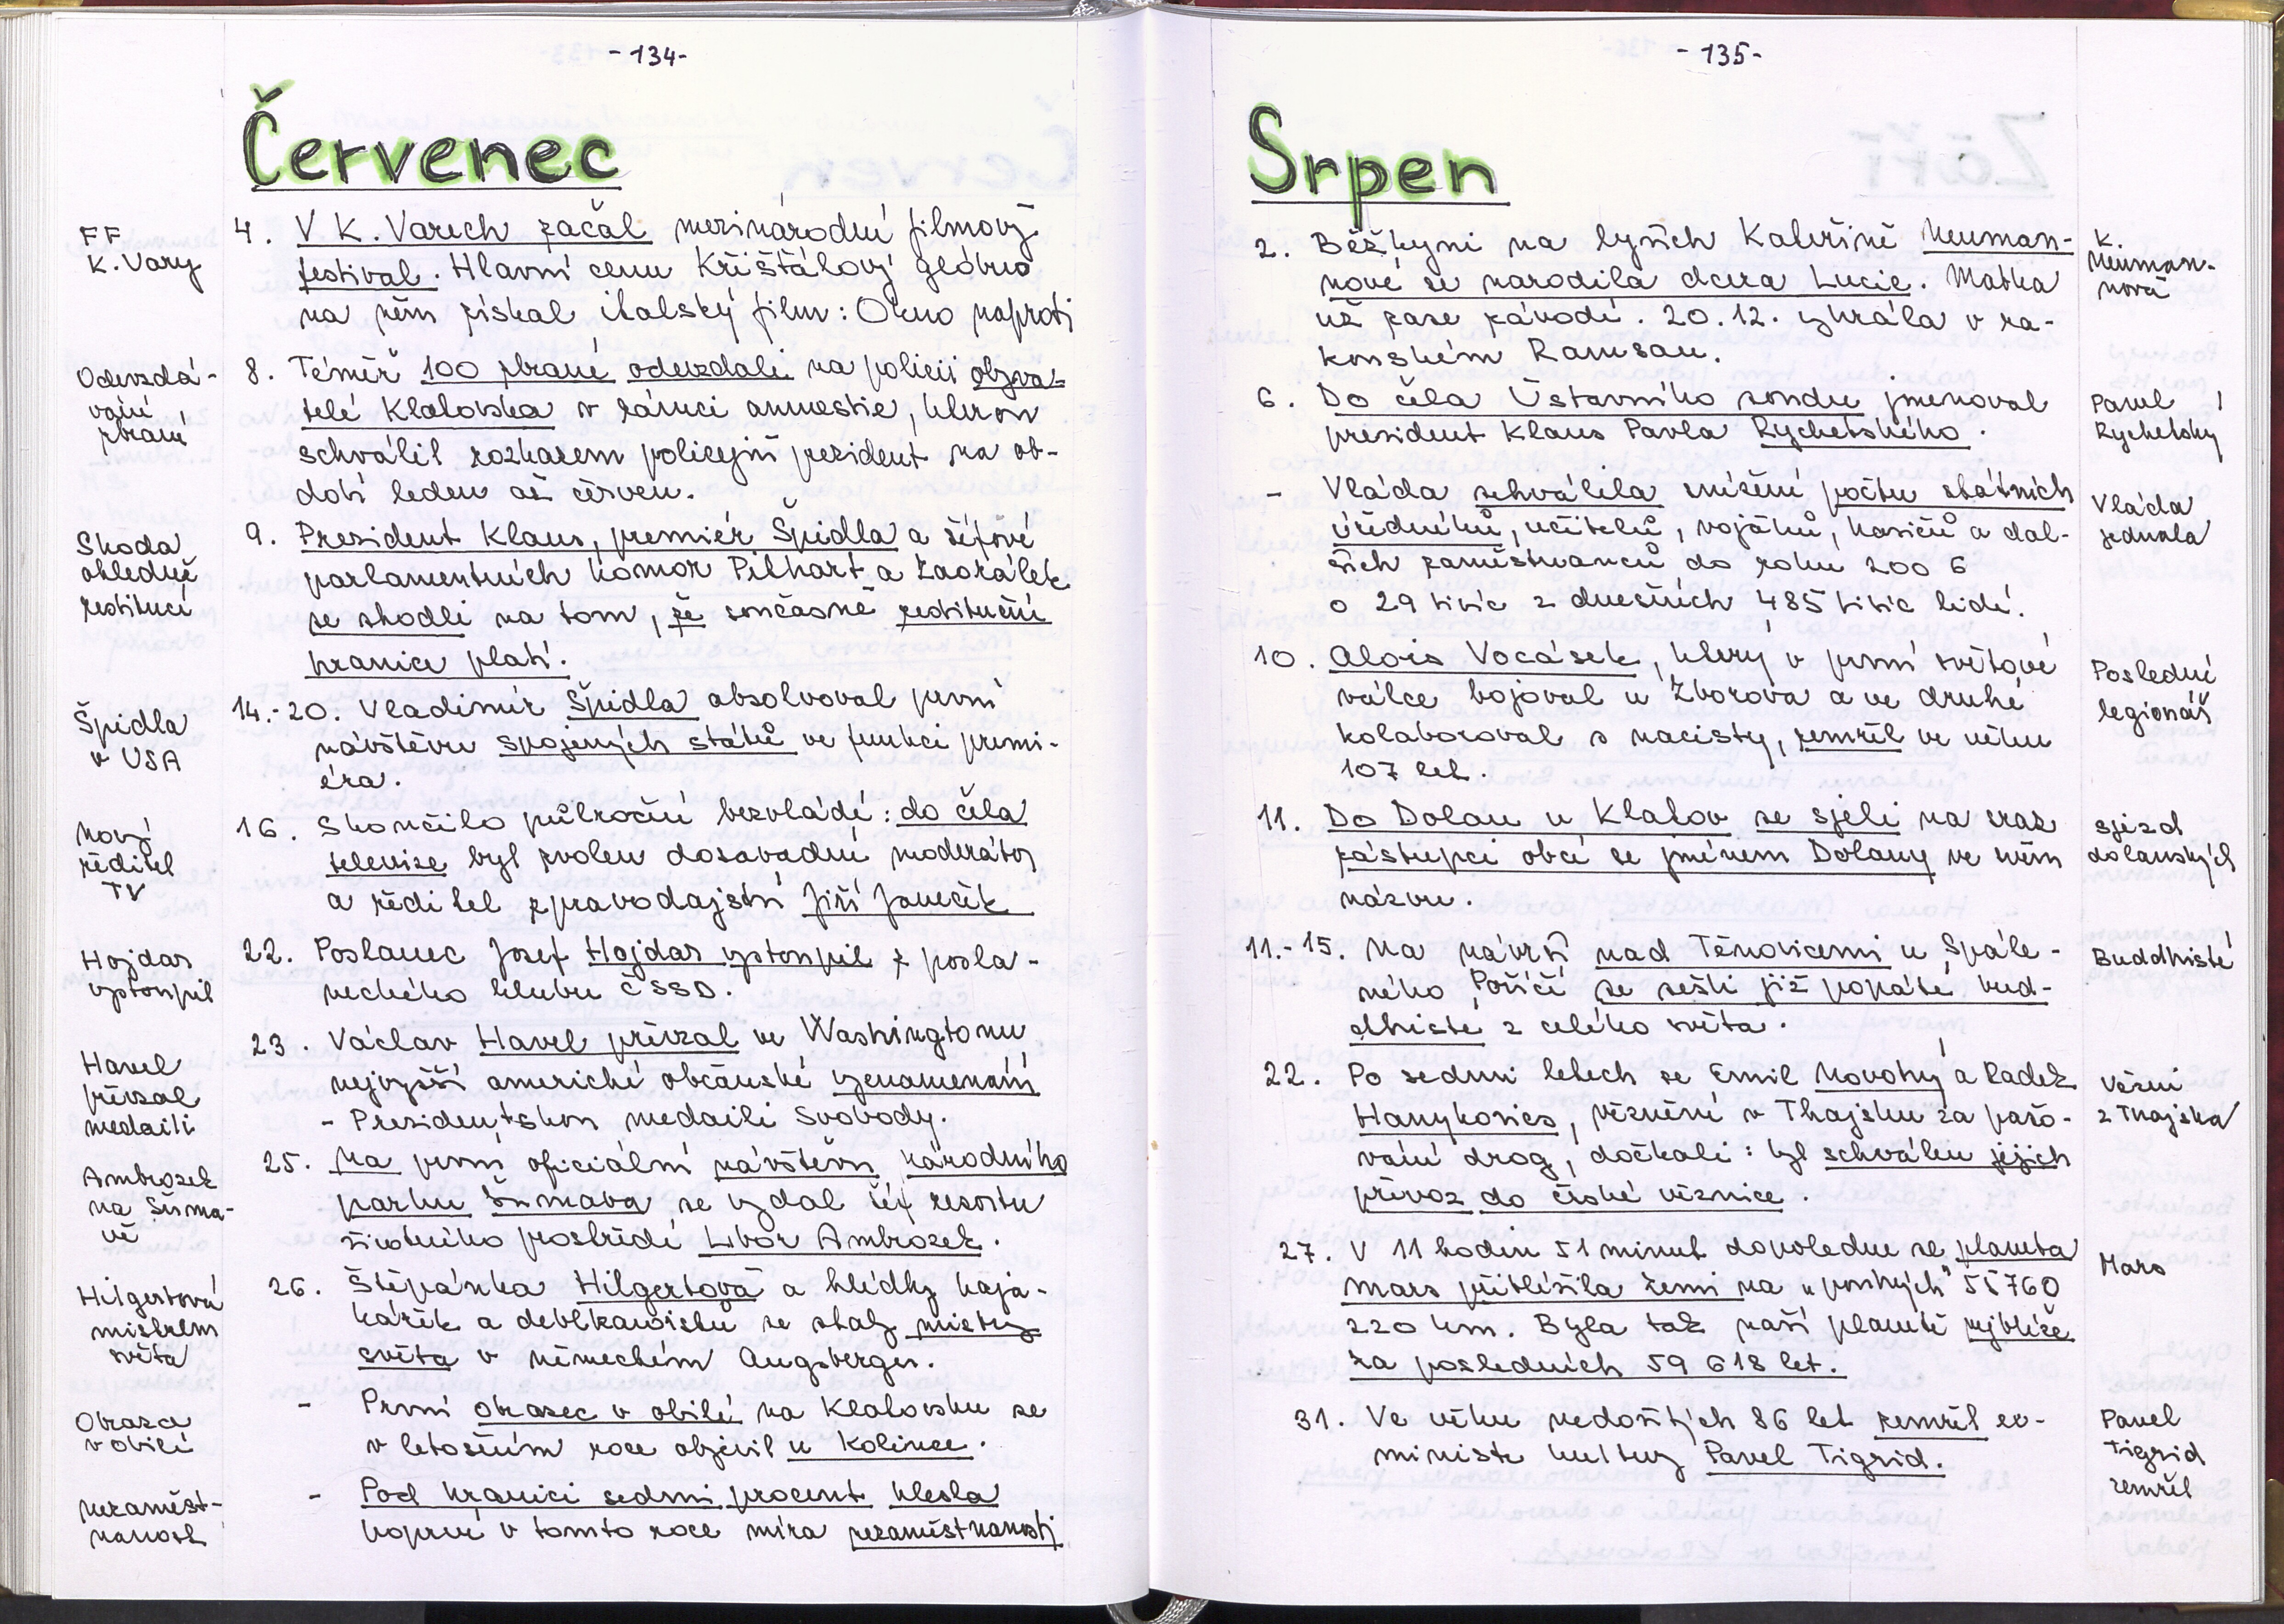 - 134 -
Červenec
FF
K. Vary
4. V K. Varech začal mezinárodní filmový
festival. Hlavní cenu Křišťálový glóbus
na něm získal italský film: Okno naproti
Odevzdá-
vání
zbraní
8. Téměř 100 zbraní odevzdali na policii obyva-
telé Klatovska v rámci amnestie, kterou
schválil rozkazem policejní prezident na ob-
dobí leden až červen.
Shoda
ohledně
restitucí
9. Prezident Klaus, premiér Špidla a šéfové
parlamentních komor Pithart a Zaorálek
se shodli na tom, že současné restituční
hranice platí.
Špidla
v USA
14.-20. Vladimír Špidla absolvoval první
návštěvu spojených států ve funkci premi-
éra.
nový
ředitel
TV
16. Skončilo půlroční bezvládí: do čela
televize byl zvolen dosavadní moderátor
a ředitel zpravodajství Jiří Janeček
Hojdar
vystoupil
22. Poslanec Josef Hojdar vystoupil z posla-
neckého klubu ČSSD.
Havel
převzal
medaili
23. Václav Havel převzal ve Washingtonu
nejvyšší americké občanské vyznamenání
- Prezidentskou medaili Svobody.
Ambrozek
na Šuma-
vě
25. Na první oficiální návštěvu národního
parku Šumava se vydal šéf resortu
životního prostředí Libor Ambrozek.
Hilgertová
mistrem
světa
26. Štěpánka Hilgertová a hlídky kaja-
kářek a deblkanoistů se staly mistry
světa v německém Augsbergu.
Obrazce
v obilí
- První obrazec v obilí na Klatovsku se
v letošním roce objevil u Kolince.
nezaměst-
nanost
- Pod hranici sedmi procent klesla
poprvé v tomto roce míra nezaměstnanosti
- 135 -
Srpen
2. Běžkyni na lyžích Kateřině Neuman-
nové se narodila dcera Lucie. Matka
už zase závodí. 20.12. vyhrála v ra-
kouském Ramsau.
K.
Neuman-
nová
6. Do čela Ústavního soudu jmenoval
prezident Klaus Pavla Rychetského.
Pavel
Rychetský
- Vláda schválila snížení počtu státních
úředníků, učitelů, vojáků, hasičů a dal-
ších zaměstnanců do roku 2006
o 29 tisíc z dnešních 485 tisíc lidí.
Vláda
jednala
10. Alois Vocásek, který v první světové
válce bojoval u Zborova a ve druhé
kolaboroval s nacisty, zemřel ve věku
107 let.
Poslední
legionář
11. Do Dolan u Klatov se sjeli na sraz
zástupci obcí se jménem Dolany ve svém
názvu.
sjezd
dolanských
11.-15. Na návrší nad Těnovicemi u Spále-
ného Poříčí se sešli již popáté bud-
dhisté z celého světa.
Buddhisté
22. Po sedmi letech se Emil Novotný a Radek
Hanykovics, věznění v Thajsku za pašo-
vání drog, dočkali: byl schválen jejich
převoz do české věznice.
Vězni
z Thajska
27. V 11 hodin 51 minut dopoledne se planeta
Mars přiblížila Zemi na „pouhých" 55 760
220 km. Byla tak naší planetě nejblíže
za posledních 59 618 let.
Mars
31. Ve věku nedožitých 86 let zemřel ex-
ministr kultury Pavel Tigrid.
Pavel
Tigrid
zemřel